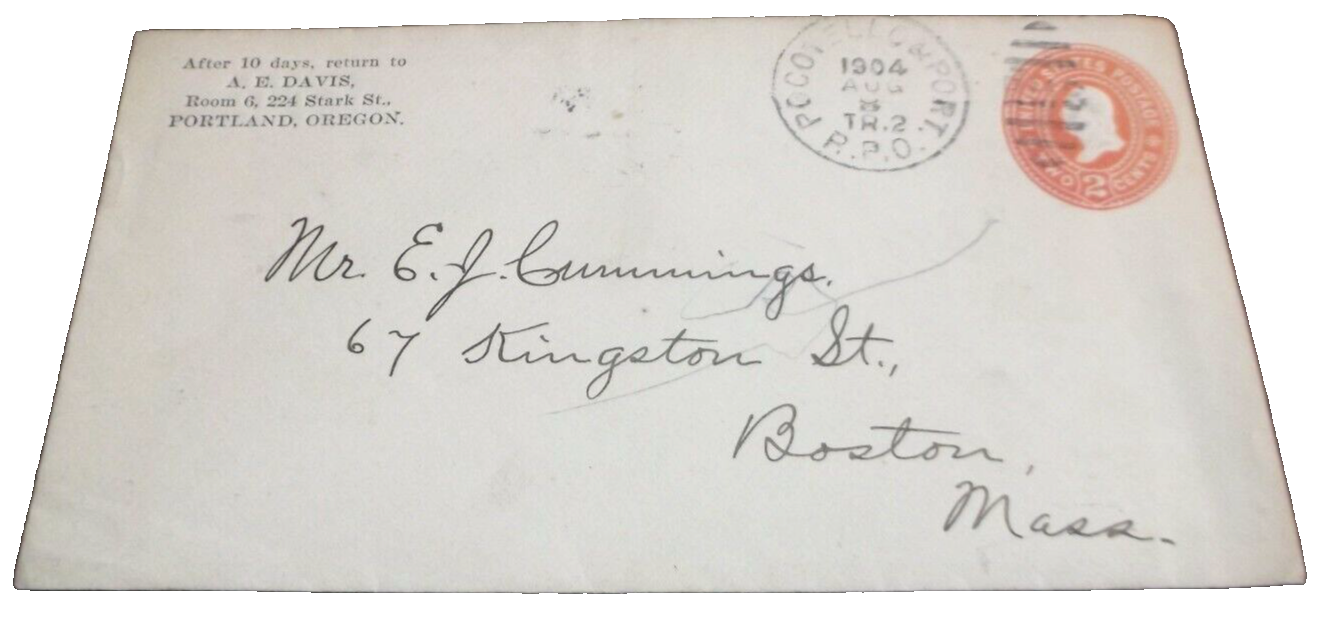 After 10 days, return to
A. E. DAVIS,
Room 6, 224 Stark St.,
PORTLAND, OREGON.
POCOTELLO & PORT.
1904
AUG
TR. 2
R.P.O.
UNITED STATES POSTAGE
TWO 2 CENTS
Mr. E. J. Cummings.
67 Kingston St.,
Boston,
Mass.